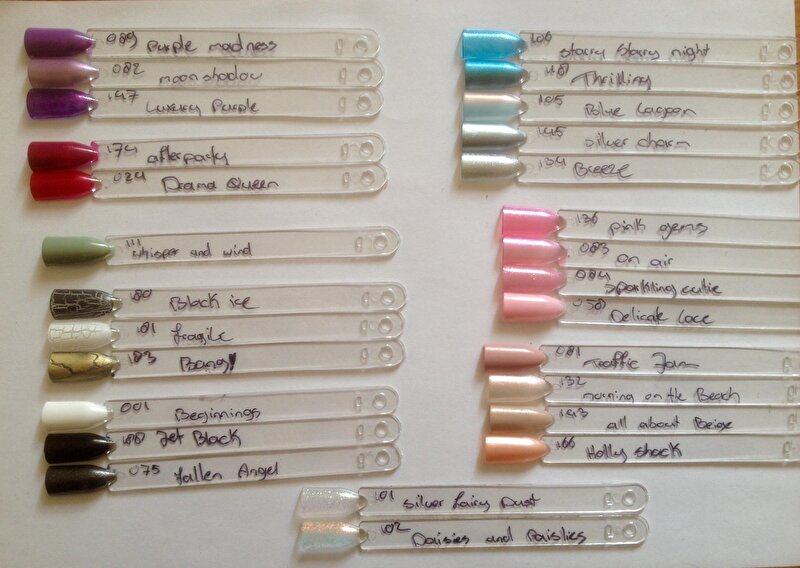 089 Purple madness
082 moonshadow
147 Luxury Purple
174 afterparty
024 Drama Queen
111 Whisper and wind
180 Black ice
181 fragile
183 Bang!
001 Beginnings
Jet Black
075 Fallen Angel
101 Silver Fairy Dust
102 Daisies and Paislies
106 Starry Starry night
Thrilling
105 Blue Lagoon
145 Silver charm
134 Breeze
136 pink gems
083 on air
084 Sparkling cutie
058 Delicate Lace
081 Traffic Jam
132 morning on the Beach
143 all about Beige
166 Holly shock